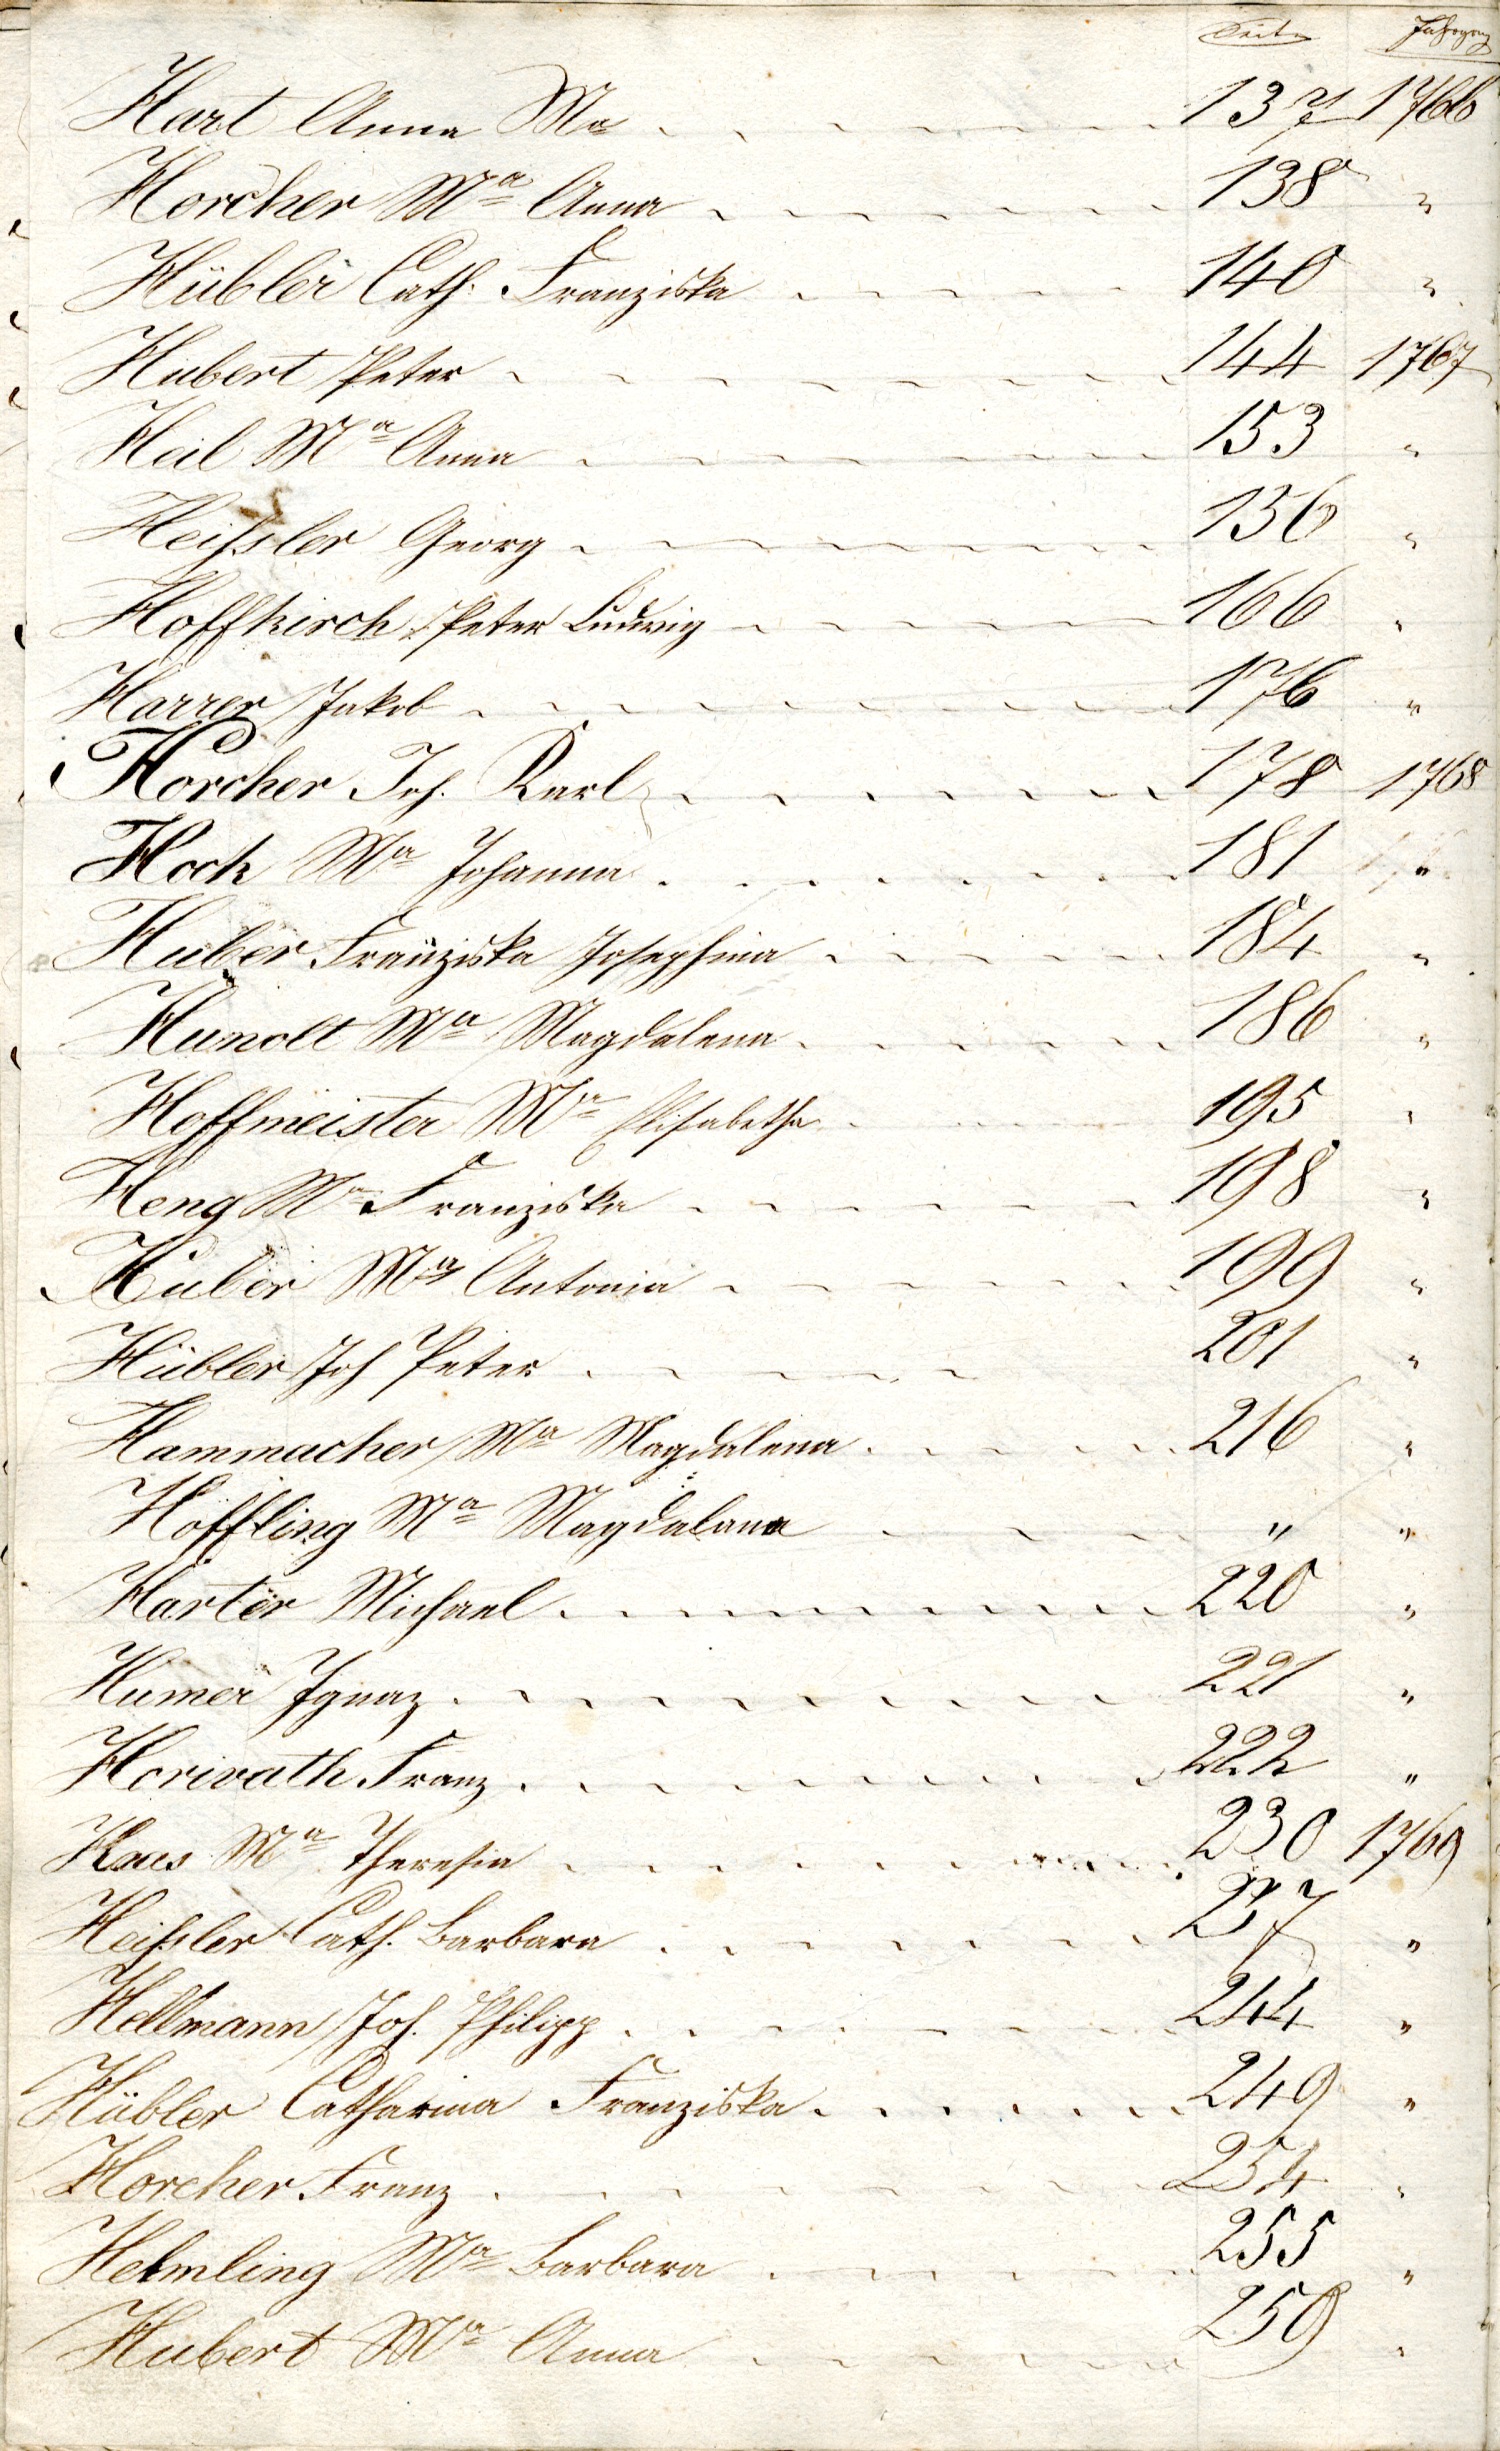 Seite Jahrgang
Hart Anna Ma 137 1766
Horcher Ma Anna 138 "
Hübler Cath. Franziska 140 "
Hubert Peter 144 1767
Heil Ma Anna 153 "
Heißler Georg 156 "
Hoffkirch Peter Ludwig 166 "
Harrer Jakob 176 "
Horcher Joh. Karl 178 1768
Hock Ma Johanna 181 "
Huber Franziska Josephina 184 "
Hunolt Ma Magdalena 186 "
Hoffmeister Ma Elisabetha 195 "
Heng Ma Franziska 198 "
Huber Ma Antonia 199 "
Hübler Joh Peter 201 "
Hammacher Ma Magdalena 216 "
Höffling Ma Magdalana " "
Harter Michael 220 "
Humer Ignaz 221 "
Horivath Franz 222 "
Haas Ma Theresia 230 1769
Heißler Cath. Barbara 237 "
Hellmann Joh. Philipp 244 "
Hübler Catharina Franziska 249 "
Horcher Franz 254 "
Helmling Ma Barbara 255 "
Hubert Ma Anna 259 "